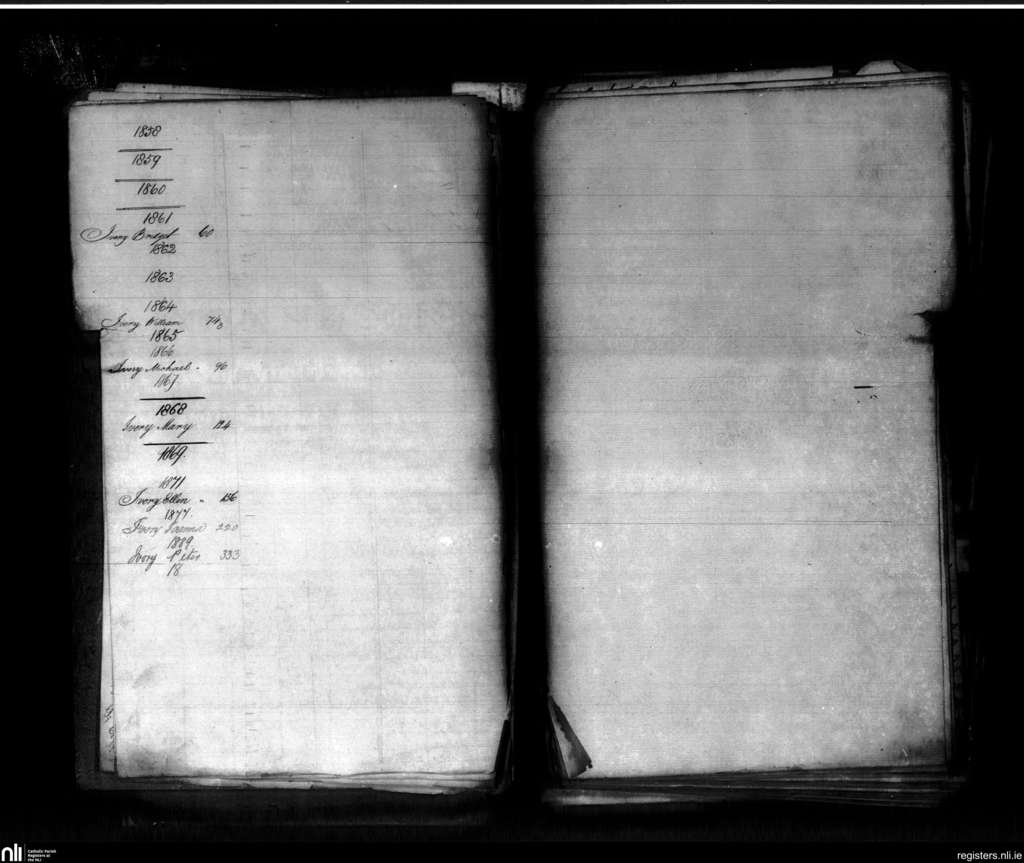 1858
1859
1860
1861
Ivory Bridget 60
1862
1863
1864
Ivory William 74
1865
1866
Ivory Michael . 96
1867
1868
Ivory Mary 124
1869.
1871
Ivory Ellen . 156
1877.
Ivory 220
1889
Ivory Peter 333
18
nli
Catholic Parish
Registers at
the NLI
registers.nli.ie